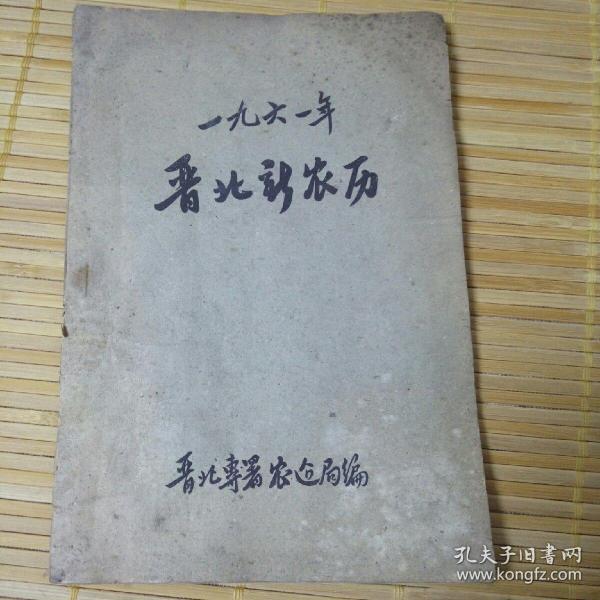 一九六一年
晋北新农历
晋北專署农边局编
孔夫子旧書网
www.kongfz.com